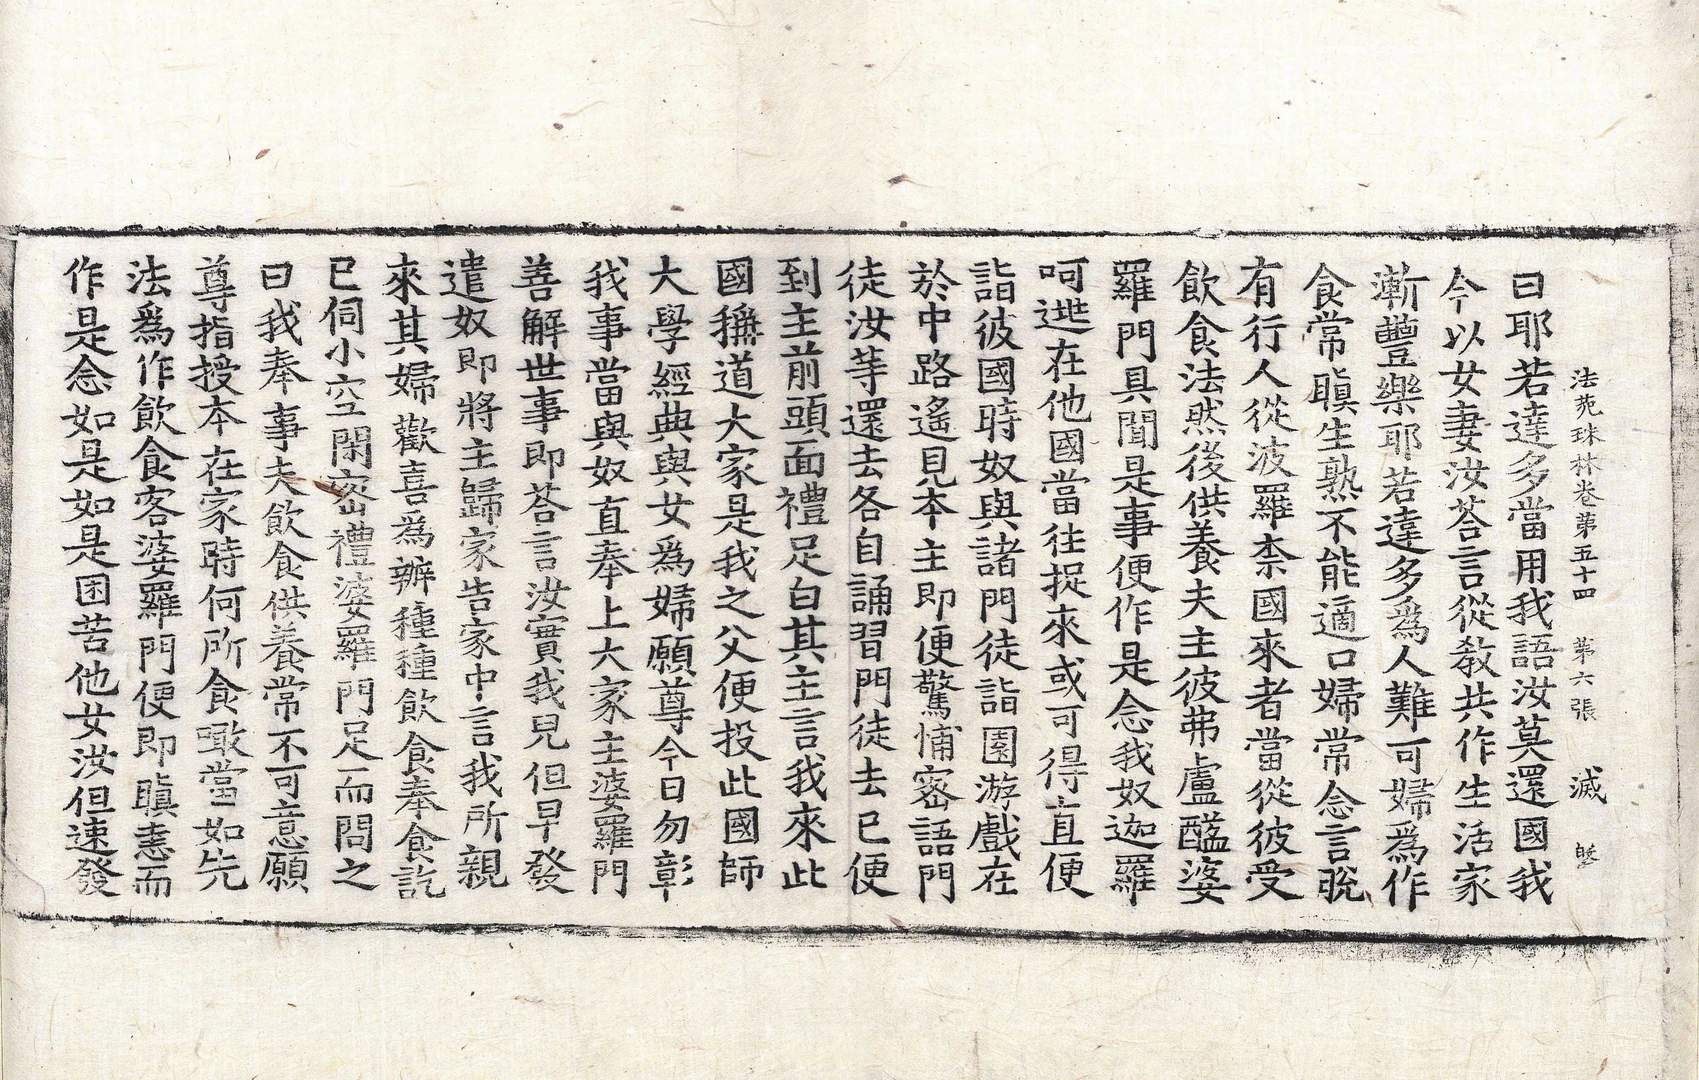 法苑珠林卷第五十四　第六張　滅
曰耶若達多當用我語汝莫還國我
今以女妻汝荅言從教共作生活家
漸豐樂耶若達多爲人難可婦為作
食常瞋生熟不能適口婦常念言脫
有行人從波羅柰國來者當從彼受
飲食法然後供養夫主彼弗盧醯婆
羅門具聞是事便作是念我奴迦羅
呵逃在他國當往捉來或可得直便
詣彼國時奴與諸門徒詣園游戲在
於中路遙見本主即便驚怖密語門
徒汝等還去各自誦習門徒去已便
到主前頭面禮足白其主言我來此
國稱道大家是我之父便投此國師
大學經典與女爲婦願尊今日勿彰
我事當與奴直奉上大家主婆羅門
善解世事即荅言汝實我兒但早發
遣奴即將主歸家告家中言我所親
來其婦歡喜爲辦種種飲食奉食訖
已伺小空閑密禮婆羅門足而問之
曰我奉事夫飲食供養常不可意願
尊指授本在家時何所食噉當如先
法爲作飲食客婆羅門便即瞋恚而
作是念如是如是困苦他女汝但速發